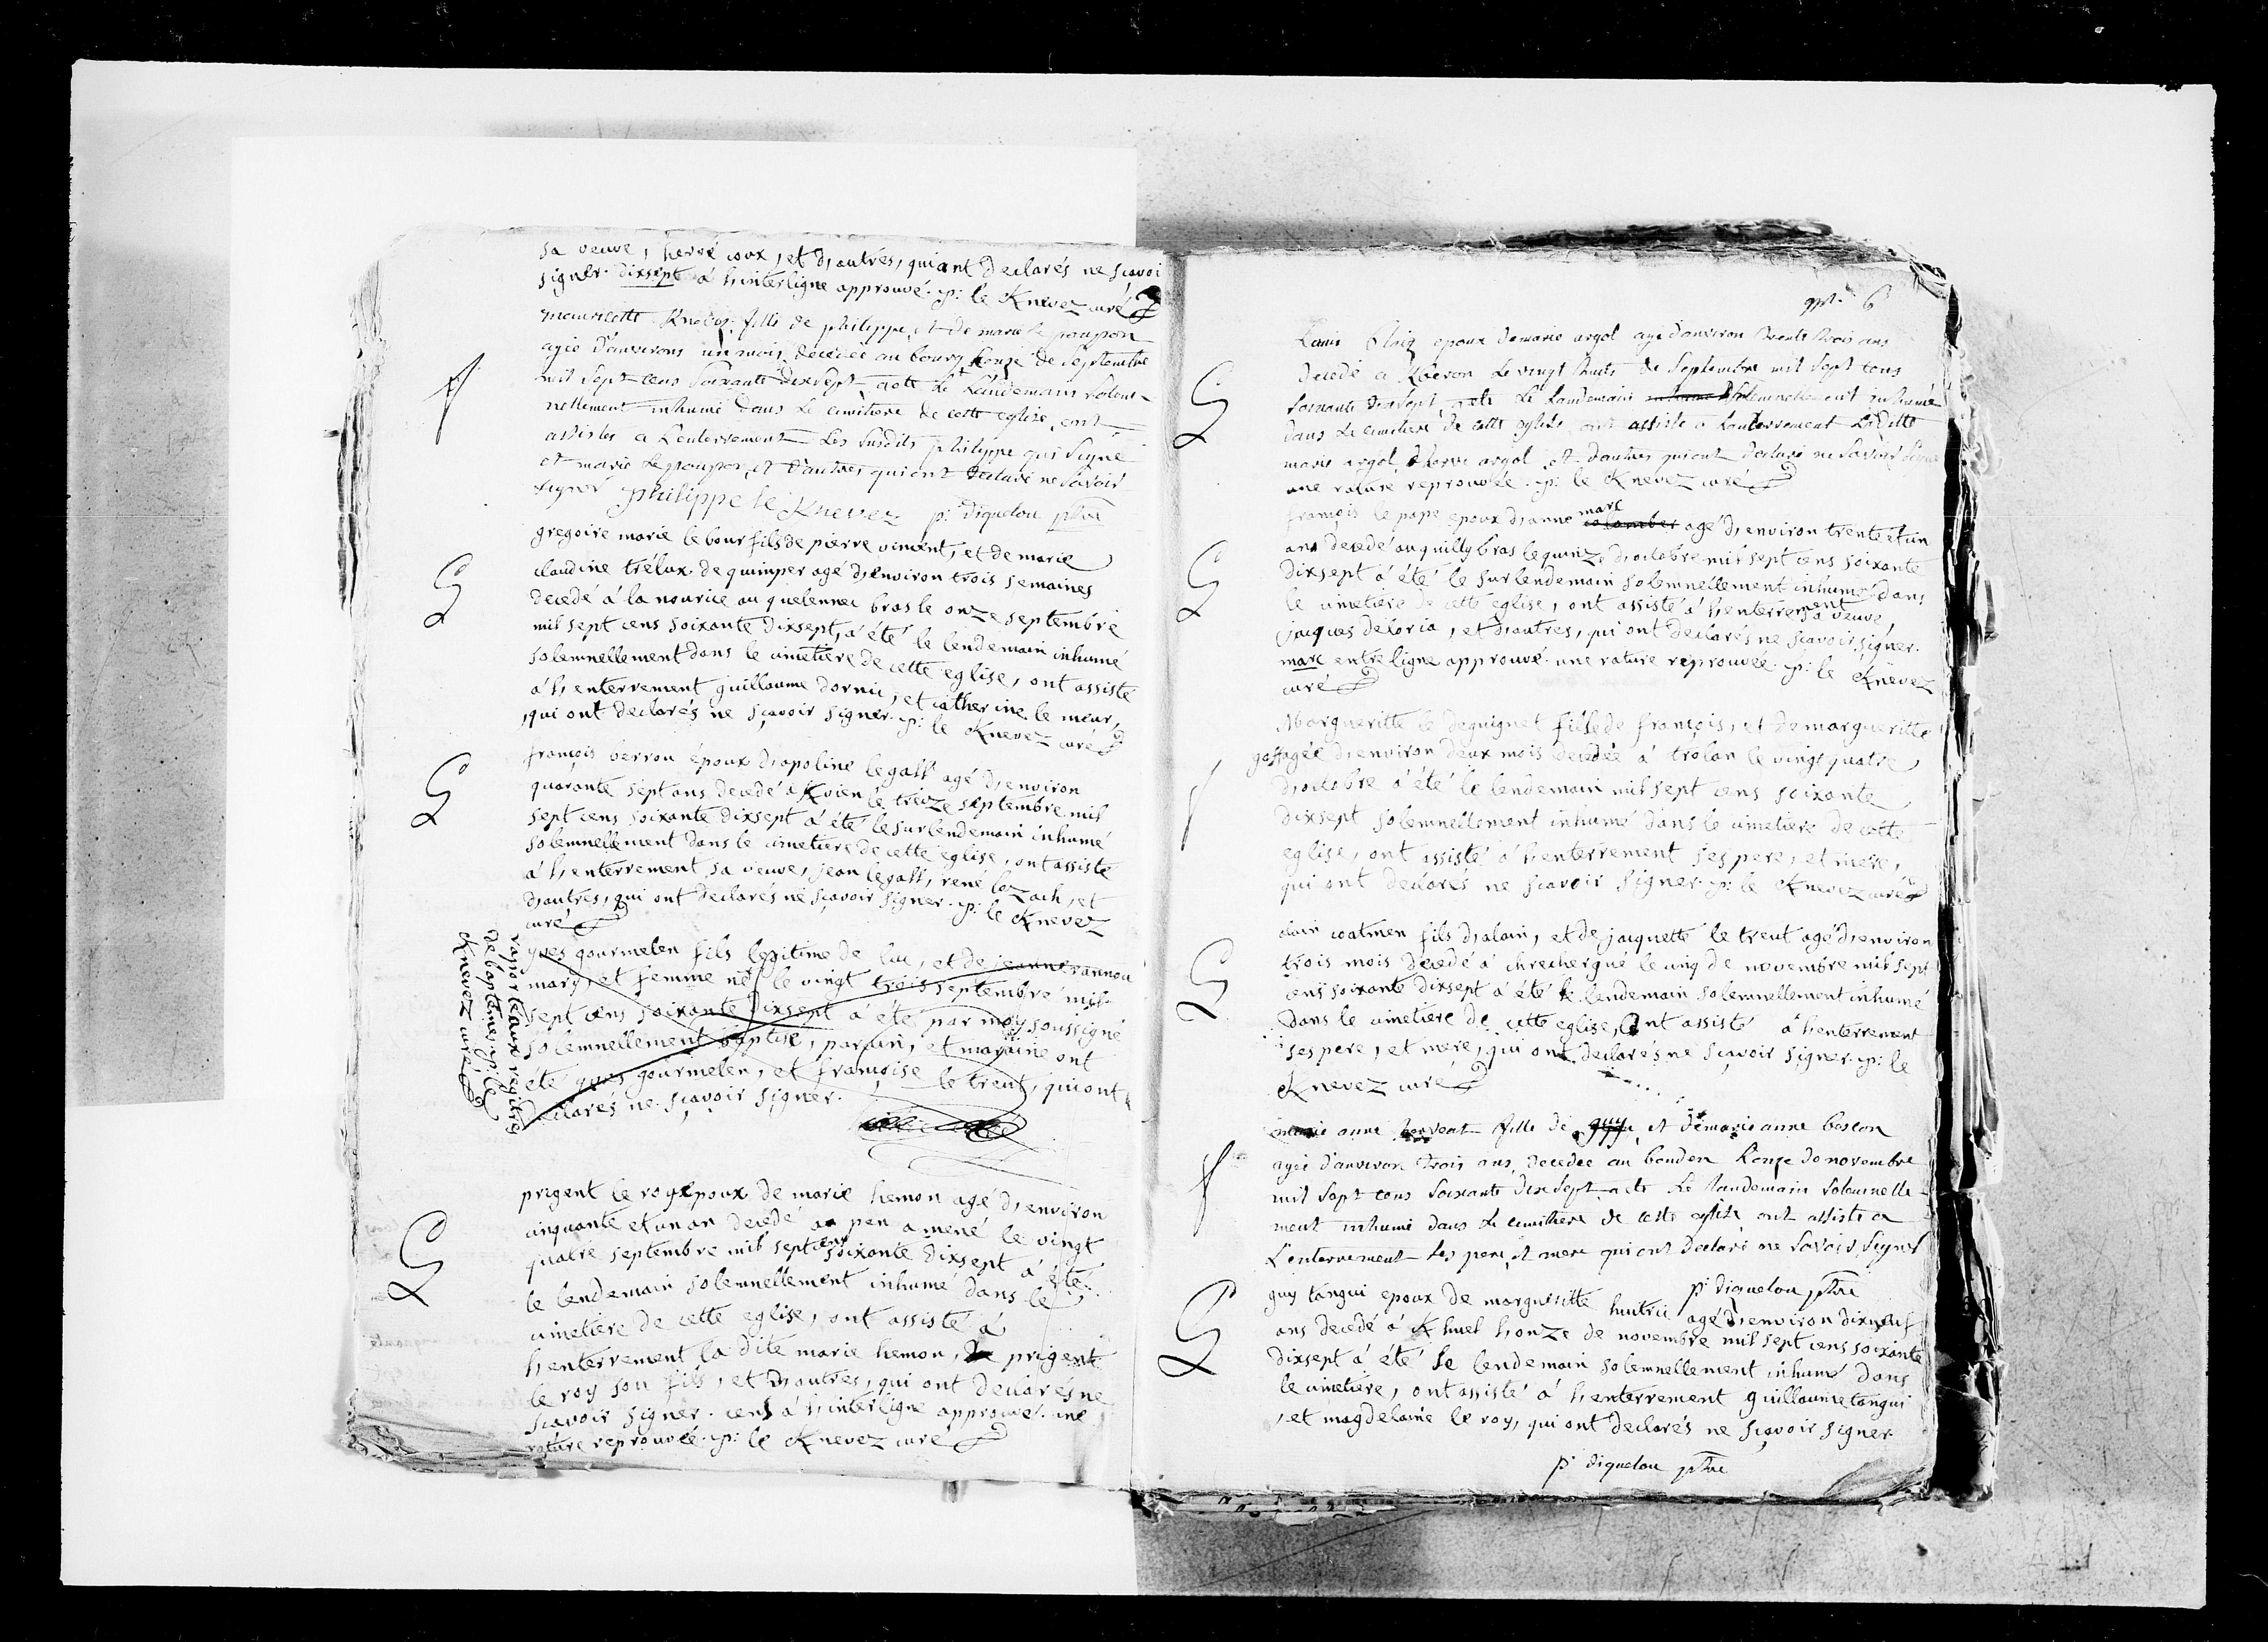 sa veuve, hervé coux, et d, autrés, qui ont declarés ne scavoi
signer. dixsept á l, interligne approuvé. p: le Knevez curé
mauricette Knevez fille de philippe, et de marie le poupon
agée d'anvirons un mois, decedée au bourg l'onze de Septembre
mil Sept cens Soixante dixsept aete Le Landemain Solem-
nellement inhumé dans Le cimitiere de cette eglise, ont
assistes a L'enterrement Les Susdits philippe qui Signe
et marie Le poupon, et d'autres qui ont declaré ne Savoir
signer philippe le Knevez p: diquelou ptre
gregoire marie le bour fils de pierre vincent, et de marie
claudine trélux de quimper agé d, environ trois semaines
decedé á la nourice au quelennec bras le onze septembre
mil sept cens soixante dixsept, á été le lendemain inhumé
solemnellement dans le cimetiere de cette eglise, ont assisté
á l, enterrement guillaume dornic, et catherine le meur,
qui ont declarés ne sçavoir signer. p: le Knevez curé
françois berrou époux d, apoline le gall agé d, environ
quarante sept ans decedé á Kvien le treize septembre mil
sept cens soixante dixsept á été le surlendemain inhumé
solemnellement dans le cimetiere de cette eglise, ont assisté
á l, enterrement sa veuve, jean le gall, rené lozach, et
d, autres, qui ont declarés ne sçavoir signer. p: le Knevez
curé
yves gourmelen fils legitime de luc, et de jeanne rannou
mary, et femme né le vingt trois septembre mil
sept cens soixante dixsept á été par moy soussigné
solemnellement baptisé, parain, et maraine ont
été yves gourmelen, et françoise le treut, qui ont
declarés ne sçavoir signer.
raporté aux regitres
de baptêmes. p: le
Knevez curé
prigent le roy époux de marie hemon agé d, environ
cinquante et un an decedé au pen a mené le vingt
quatre septembre mil sept cens soixante dixsept á été
le lendemain solemnellement inhumé dans le
cimetiere de cette eglise, ont assisté á
l, enterrement la dite marie hemon, prigent
le roy son fils, et d, autres, qui ont declarés ne
scavoir signer. cens á l, interligne approuvé. une
rature reprouvée. p: le Knevez curé
6
Louis Blaiz epoux de marie argol agé d'anviron trente trois ans
decedé a Kberon Le vingt huit de Septembre mil Sept cens
Soixante dixSept aete Le Landemain Solemnellement inhumé
dans Le cimitiere de cette eglise, ont assisté a Lanterrement Laditte
marie argol, herve argol et d'autres qui ont declaré ne Savoir Signe
une rature reprouvée. p: le Knevez curé
françois le pape epoux d, anne marc agé d, environ trente et un
ans decedé au quilly bras le quinze d, octobre mil sept cens soixante
dixsept á été le surlendemain solemnellement inhumé dans
le cimetiere de cette eglise, ont assisté á l, enterrement sa veuve,
jacques deloria, et d, autres, qui ont declarés ne sçavoir signer.
marc entre ligne approuvé. une rature reprouvée. p: le Knevez
curé
Margueritte le deguignet fille de françois, et de margueritte
goff agée d, environ deux mois decedée á trolan le vingt quatre
d, octobre á été le lendemain mil sept cens soixante
dixsept solemnellement inhumé dans le cimetiere de cette
eglise, ont assisté á l, enterrement ses pere, et mere,
qui ont declarés ne sçavoir signer. p: le Knevez curé
alain coatmen fils d, alain, et de jacquette le treut agé d, environ
trois mois decedé á chrechergué le cinq de novembre mil sept
cens soixante dixsept á été le lendemain solemnellement inhumé
dans le cimetiere de cette eglise, ont assisté á l, enterrement
ses pere, et mere, qui ont declarés ne sçavoir signer. p: le
Knevez curé
marie anne fille de guy, et de marie anne boscon
agée d'anviron trois ans, decedée au bouden L'onze de novembre
mil Sept cens Soixante dixSept aete Le Landemain Solemnelle-
ment inhumé dans Le cimitiere de cette eglise, ont assisté a
L'enterrement Les pere, et mere qui ont declaré ne Savoir Signer
p: diquelou ptre
guy tangui epoux de margueritte huitric agé d, environ dixneuf
ans decedé á Khuel l, onze de novembre mil sept cens soixante
dixsept á été le lendemain solemnellement inhumé dans
le cimetiere, ont assisté á l, enterrement guillaume tangui
, et magdelaine le roy, qui ont declarés ne sçavoir signer.
p: diquelou ptre